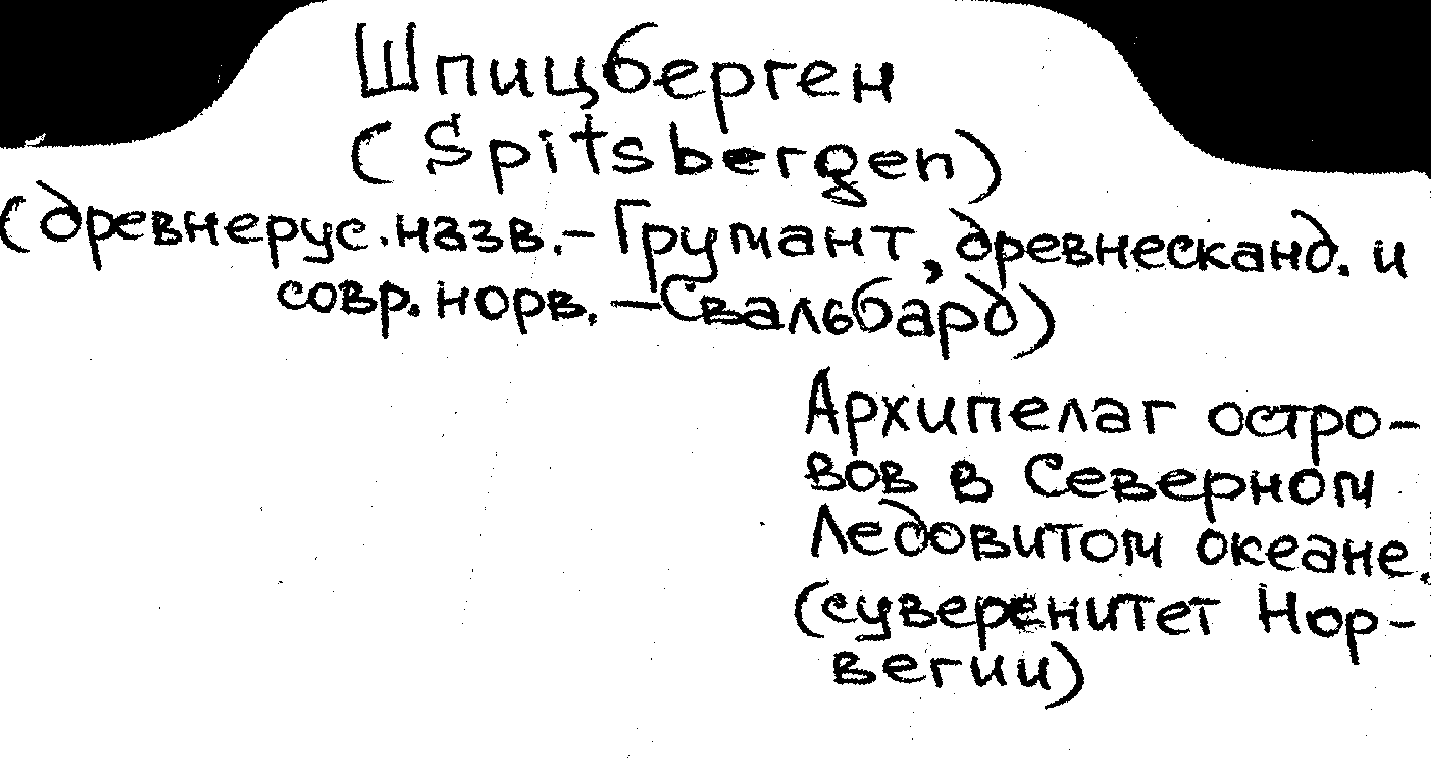 Шпицберген
(Spitsbergen)
(древнерус.назв.-Грумант, древнесканд. и
совр. норв. -Свальбард)
Архипелаг остро-
вов в Северном
Ледовитом океане.
(суверенитет Нор-
вегии)